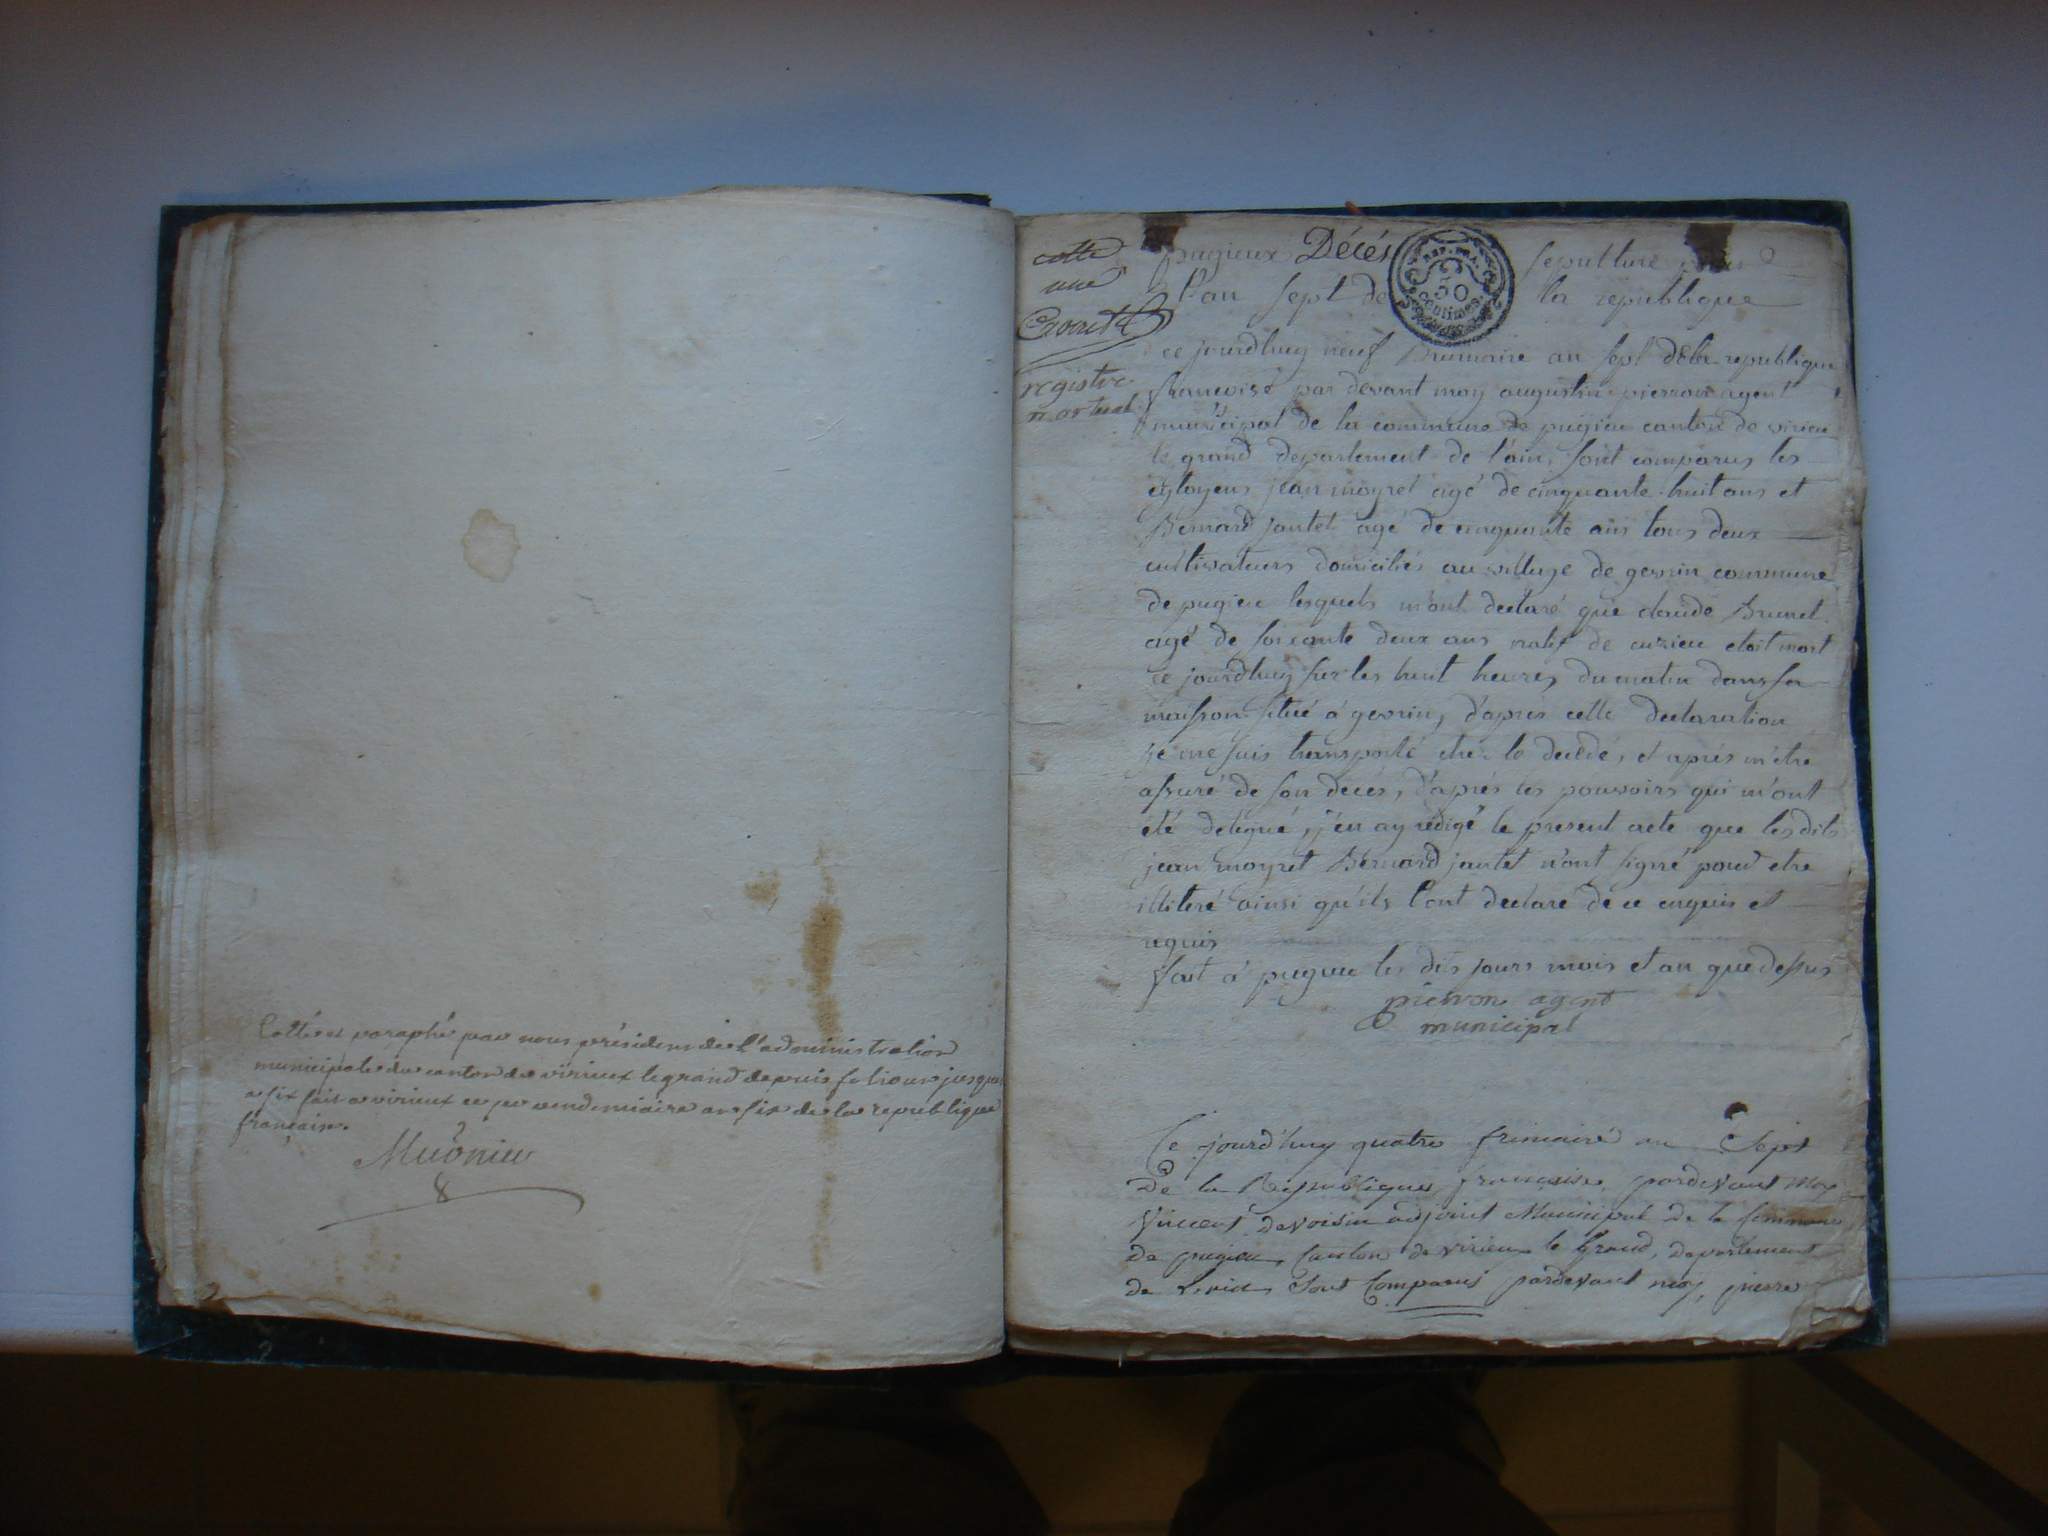 Cotté et paraphé par nous présidens de l'administration
municipale du canton de virieux le grand depuis folio un jusqu
a six fait a virieux ce per vendemiaire an six de la republique
français.
cotte
une
registre
mortual
pugieux Décès sepulture
L'an sept de la republique
REP. FRA.
50
centimes.
ce jourdhuy neuf Brumaire an sept de la republique
francoise par devant moy augustin pierron agent
municipal de la commune de pugieu canton de virieu
le grand departement de l'ain, sont comparus les
cytoyens jean moyret agé de cinquante huit ans et
Bernard jantet agé de cinquante ans tous deux
cultivateurs domiciliés au village de gevrin commune
de pugieu lesquels m'ont declaré que claude Brunet
agé de soixante deux ans natif de cuzieu etoit mort
ce jourdhuy sur les huit heures du matin dans sa
maison situé á gevrin, d'apres cette declaration
je me suis transporté chez le decedé, et aprés m'etre
assuré de son decés, d'aprés les pouvoirs qui m'ont
été delegué, j'en ay redigé le present acte que les dits
jean moyret Bernard jantet n'ont signé pour etre
illiteré ainsi qu'ils l'ont declaré de ce enquis et
requis
fait á pugieu les dis jours mois et an que dessus
pierron agent
municipal
Ce jourd'huy quatre frimaire an Sept
de la Republique française, pardevant moy
Vincent devoisin adjoint Municipal de la Commune
de pugieu, Canton de virieu le Grand, departement
de Lain Sont Comparus pardevant moy, pierre